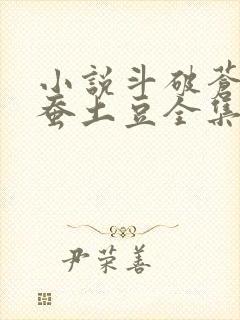 小説斗破蒼
蚕土豆全集
尹荣善